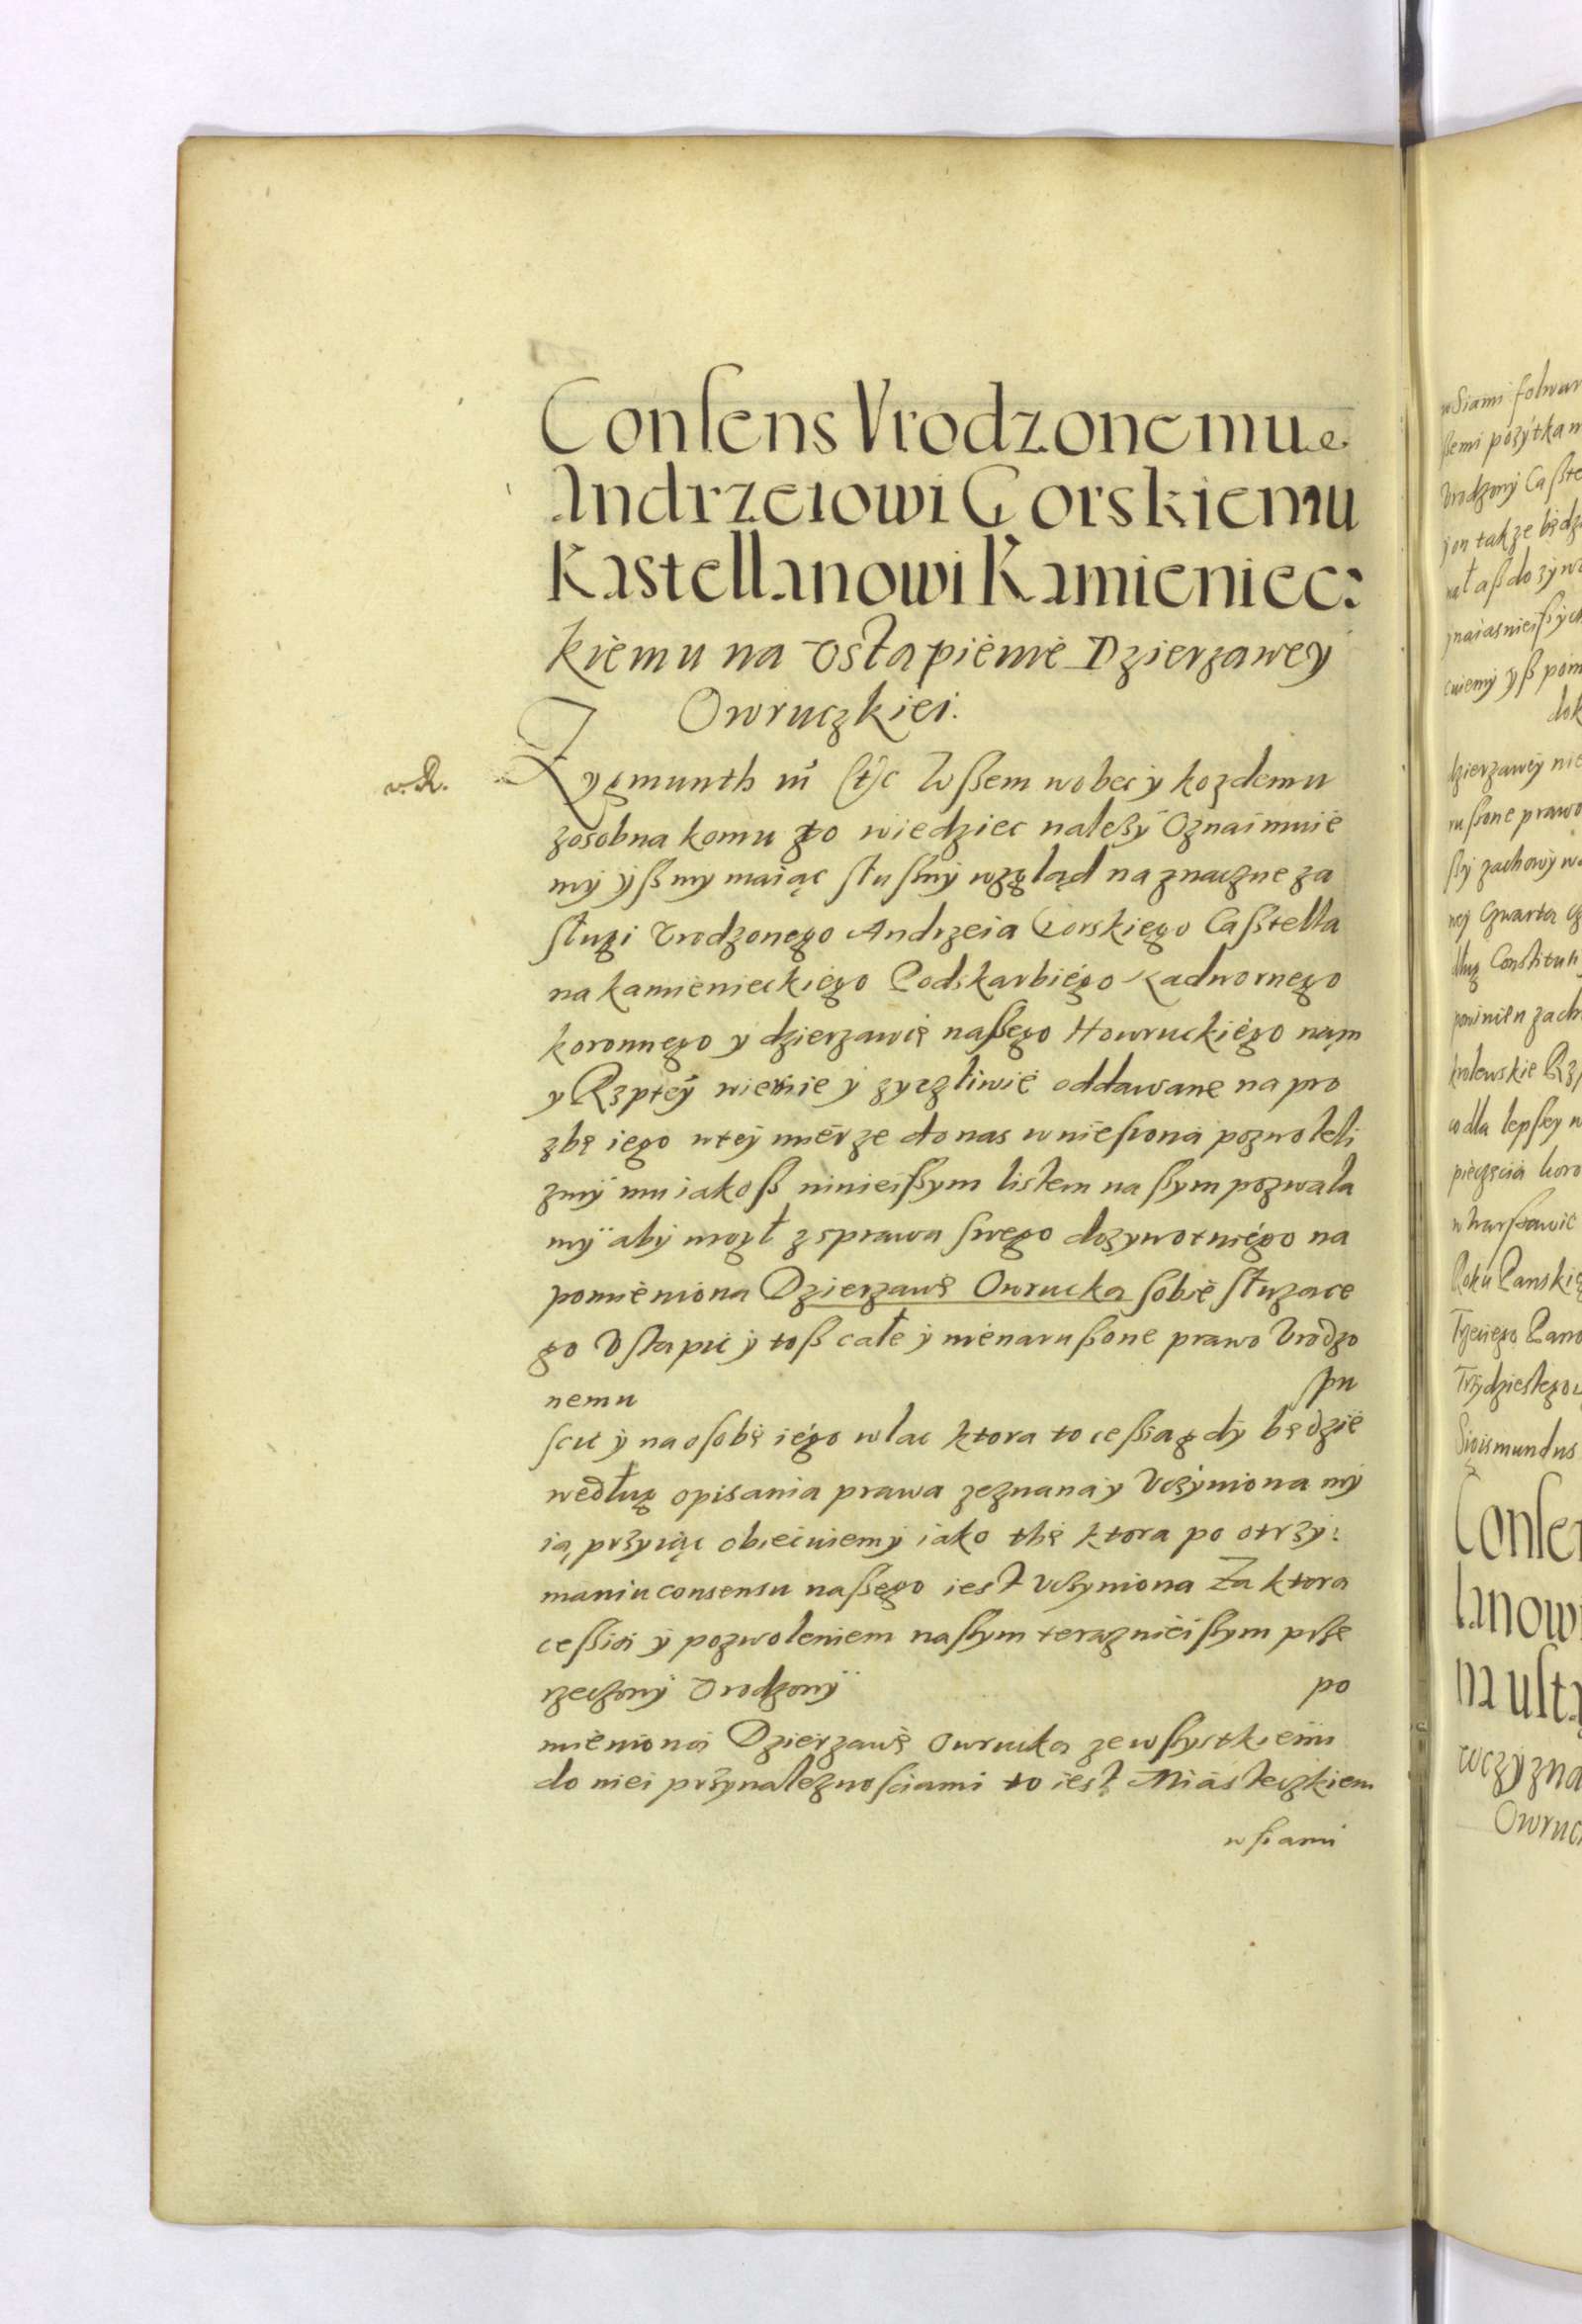 Consens Vrodzonemu
Andrzeiowi Gorskiemu
Kastellanowi Kamieniec:
kiemu na Vstapienie Dzierzawey
Owruczkiei.
v. R.
Zygmunth III etc Wßem wobec y kozdemu
zosobna komu to wiedziec należy Oznaimuie
my yßmy maiąc słußny wzgląd na znaczne za
sługi Vrodzonego Andrzeia Gorskiego Casstella
na kamienieckiego Podskarbiego Nadwornego
koronnego y dzierzawcę naßego Howruckiego nąm
y Rzptey wiernie y zyczliwie oddawane na pro
zbę iego wtey mierze do nas wniesiona pozwoleli
zmy mu iakoß ninieißym listem naßym pozwala
my aby mogł z sprawa swego dozywotniego na
pomieniona Dzierzawę Owrucka sobie słuzace
go Vstapic y toß całe y nienarußone prawo Vrodzo
nemu pu
scic y na osobę iego wlac ktora to cessia gdy będzie
według opisania prawa zeznana y Vczyniona my
ią przyiąc obiecuiemy iako thę ktora po otrzy:
maniu consensu naßego iest Vczyniona Za ktora
cessia y pozwoleniem naßym teraznieißym prze
rzeczony Vrodzony po
mieniona Dzierzawę Owrucka ze wßystkiemi
do niei przynaleznosciami to iest Miasteczkiem
wsiami
wsiami folwar
ßemi pozytkam
Vrodzony Casste
y on takze będz
dok
dzierzawey nie
rußone prawo
ßy zachowyw
ney Quarta
dług Constituti
powinien zach
krolewskie Rz
co dla lepßey w
pieczęcia koro
w Warßawie
Roku Panskie
Trzeciego Pano
Trzydziestego
Sigismundus
Consen
lanowi
na usta
Owruc